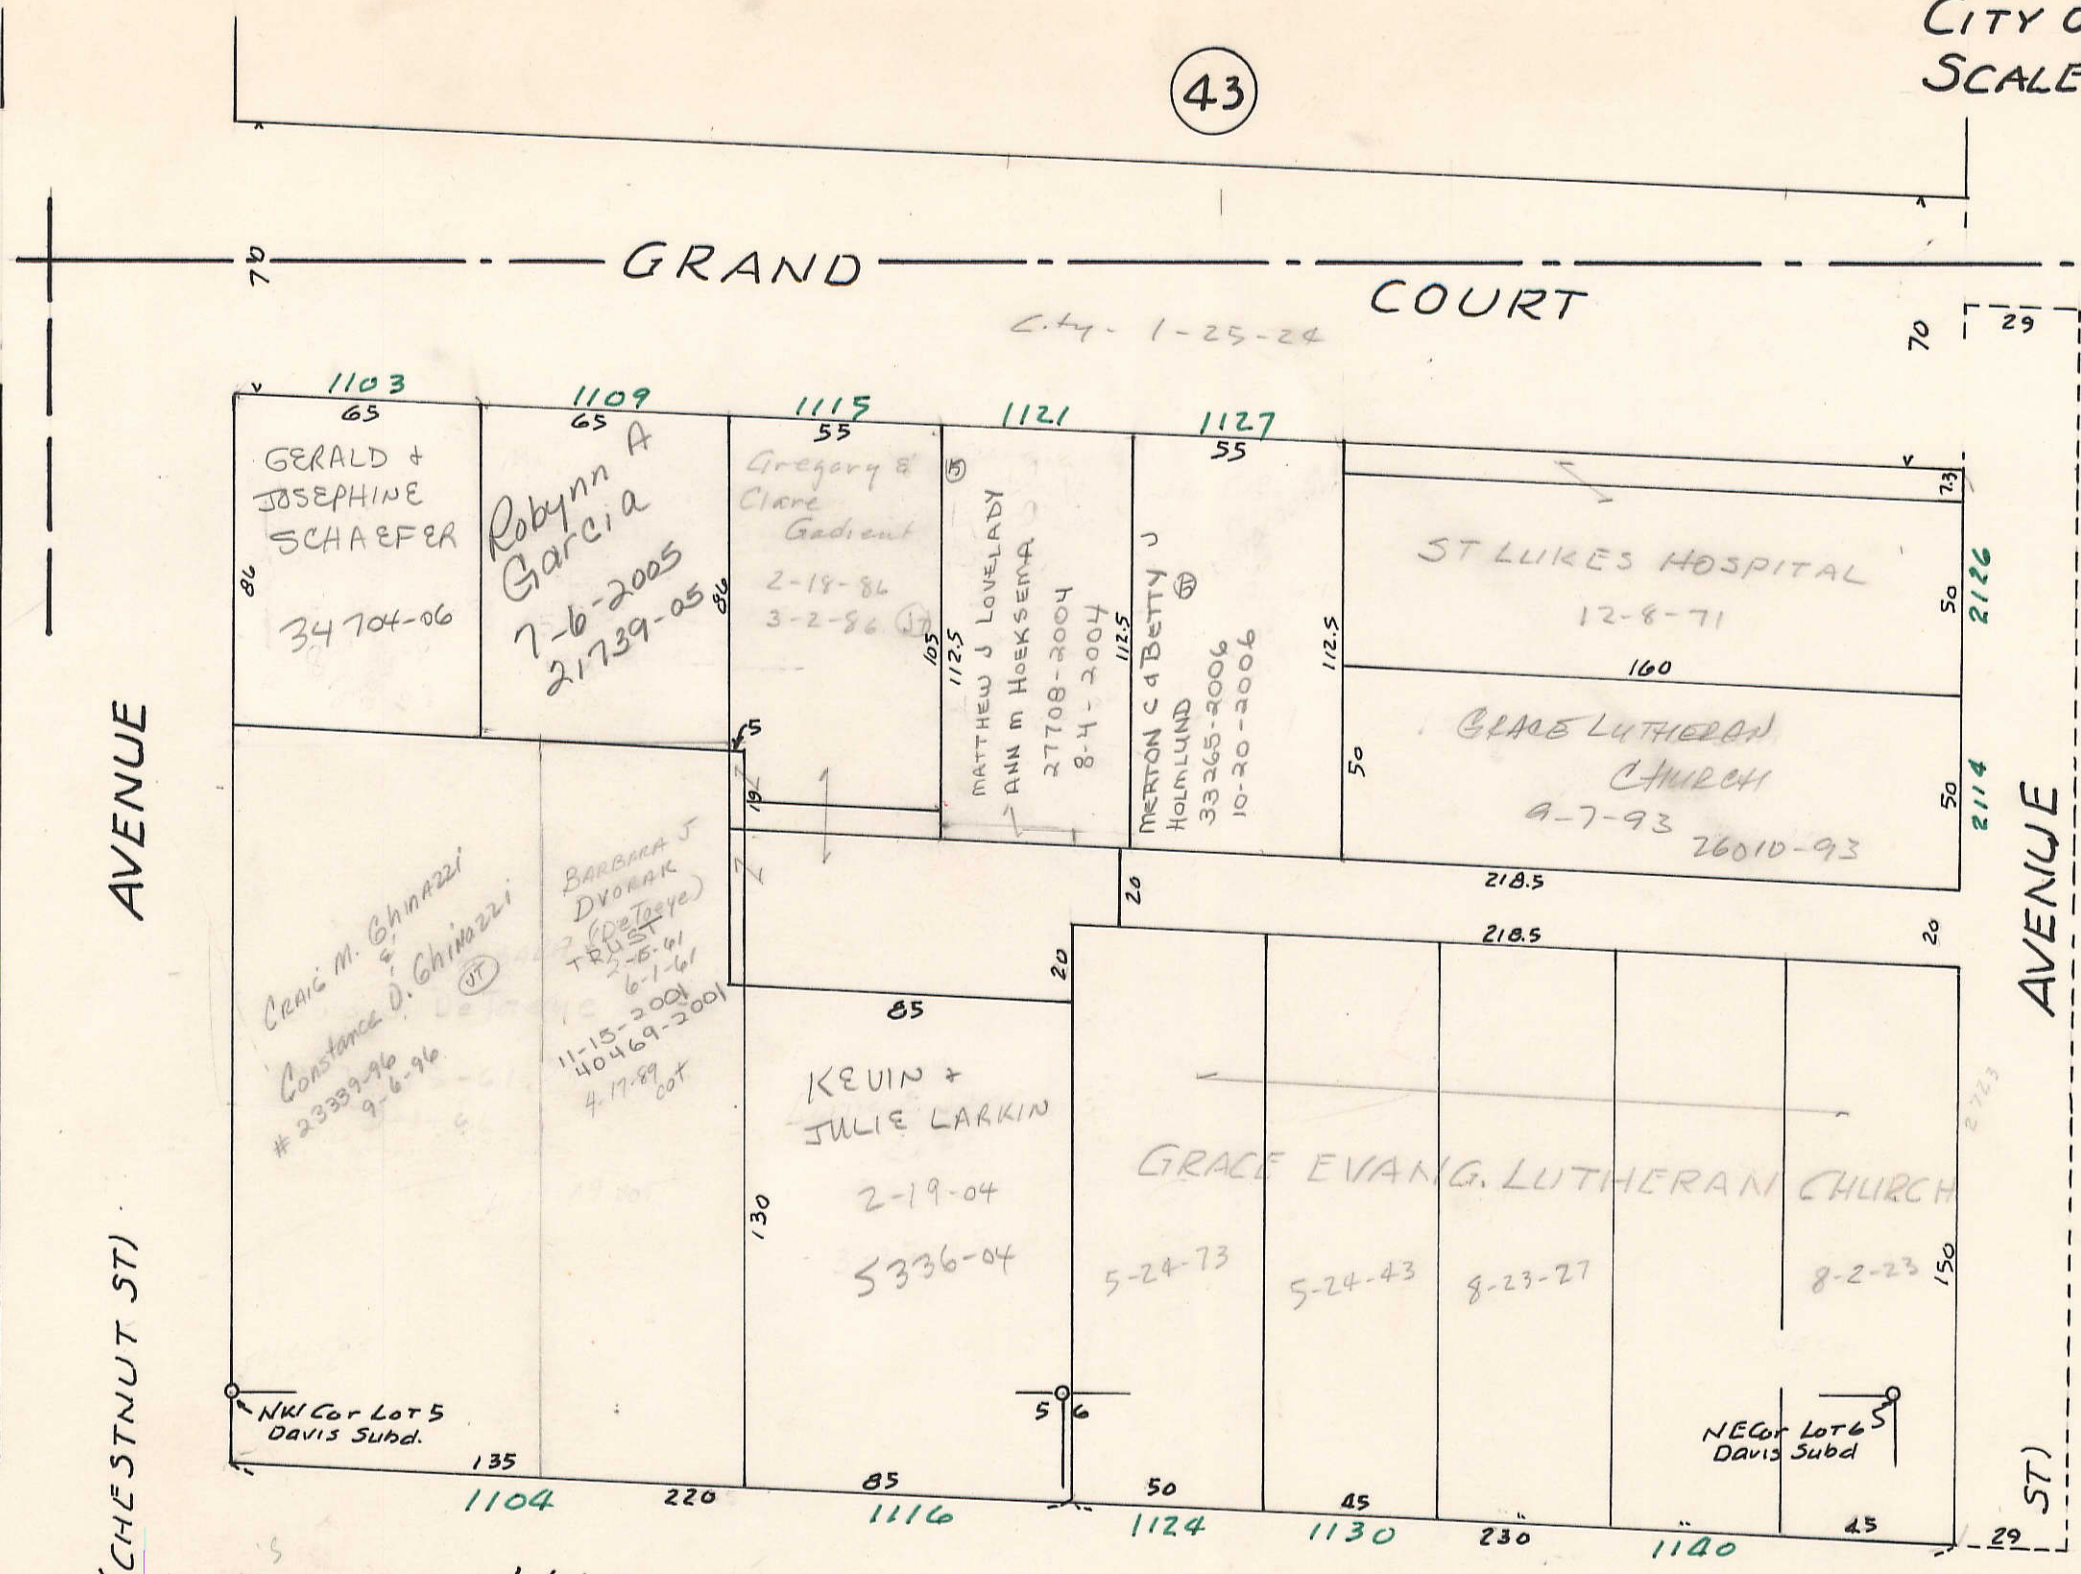 CITY O
SCALE
43
70
GRAND
COURT
City - 1-25-24
70
29
1103
65
1109
65
1115
55
1121
1127
55
GERALD &
JOSEPHINE
SCHAEFER
34704-06
86
Robynn A
Garcia
7-6-2005
21739-05
86
Gregory &
Clare
Gadient
2-18-86
3-2-86 JT
105
JT
112.5
MATTHEW J LOVELADY
ANN M HOEKSEMA
27708-2004
8-4-2004
112.5
MERTON C & BETTY J
HOLMLUND
JT
33265-2006
10-20-2006
112.5
7.3
ST LUKES HOSPITAL
12-8-71
50
2126
160
GRACE LUTHERAN
CHURCH
9-7-93
26010-93
50
50
2114
218.5
5
19
20
218.5
20
20
85
AVENUE
AVENUE
CRAIG M. GHINAZZI
&
Constance D. Ghinazzi
JT
# 23339-96
9-6-96
BARBARA J
DVORAK
(DeToeye)
TRUST
2-15-61
6-1-61
11-15-2001
40469-2001
4-17-89
cot
KEVIN &
JULIE LARKIN
2-19-04
5336-04
130
GRACE EVANG. LUTHERAN CHURCH
5-24-73
5-24-43
8-23-27
8-2-23
150
2723
(CHESTNUT ST)
ST)
NW Cor LOT 5
Davis Subd.
5 6
NE Cor LOT 6
Davis Subd
5
135
1104
220
85
1116
50
1124
45
1130
230
1140
45
29